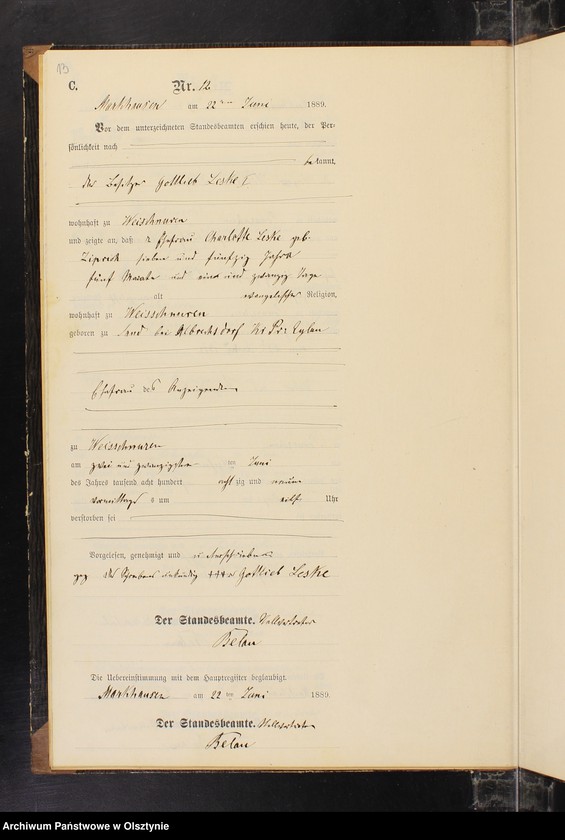 13
C.
Nr. 12
Markhausen am 22ten Juni 1889.
Vor dem unterzeichneten Standesbeamten erschien heute, der Per-
sönlichkeit nach
bekannt,
der Besitzer Gottlieb Leske I
wohnhaft zu Weisschnuren
und zeigte an, daß Ehefrau Charlotte Leske geb.
sieben und fünfzig Jahre
fünf Monate und ein und zwanzig Tage
alt evangelischer Religion,
wohnhaft zu Weisschnuren
geboren zu Sand bei Albrechtsdorf Kr Pr: Eylau
Ehefrau des Anzeigenden
zu Weisschnuren
am zwei und zwanzigsten ten Juni
des Jahres tausend acht hundert achtzig und neun
vormittags um elf Uhr
verstorben sei
Vorgelesen, genehmigt und unterschrieben
des Schreibens unkundig +++ Gottlieb Leske
Der Standesbeamte.
Belau
Die Uebereinstimmung mit dem Hauptregister beglaubigt.
Markhausen am 22 ten Juni 1889.
Der Standesbeamte.
Belau
Archiwum Państwowe w Olsztynie